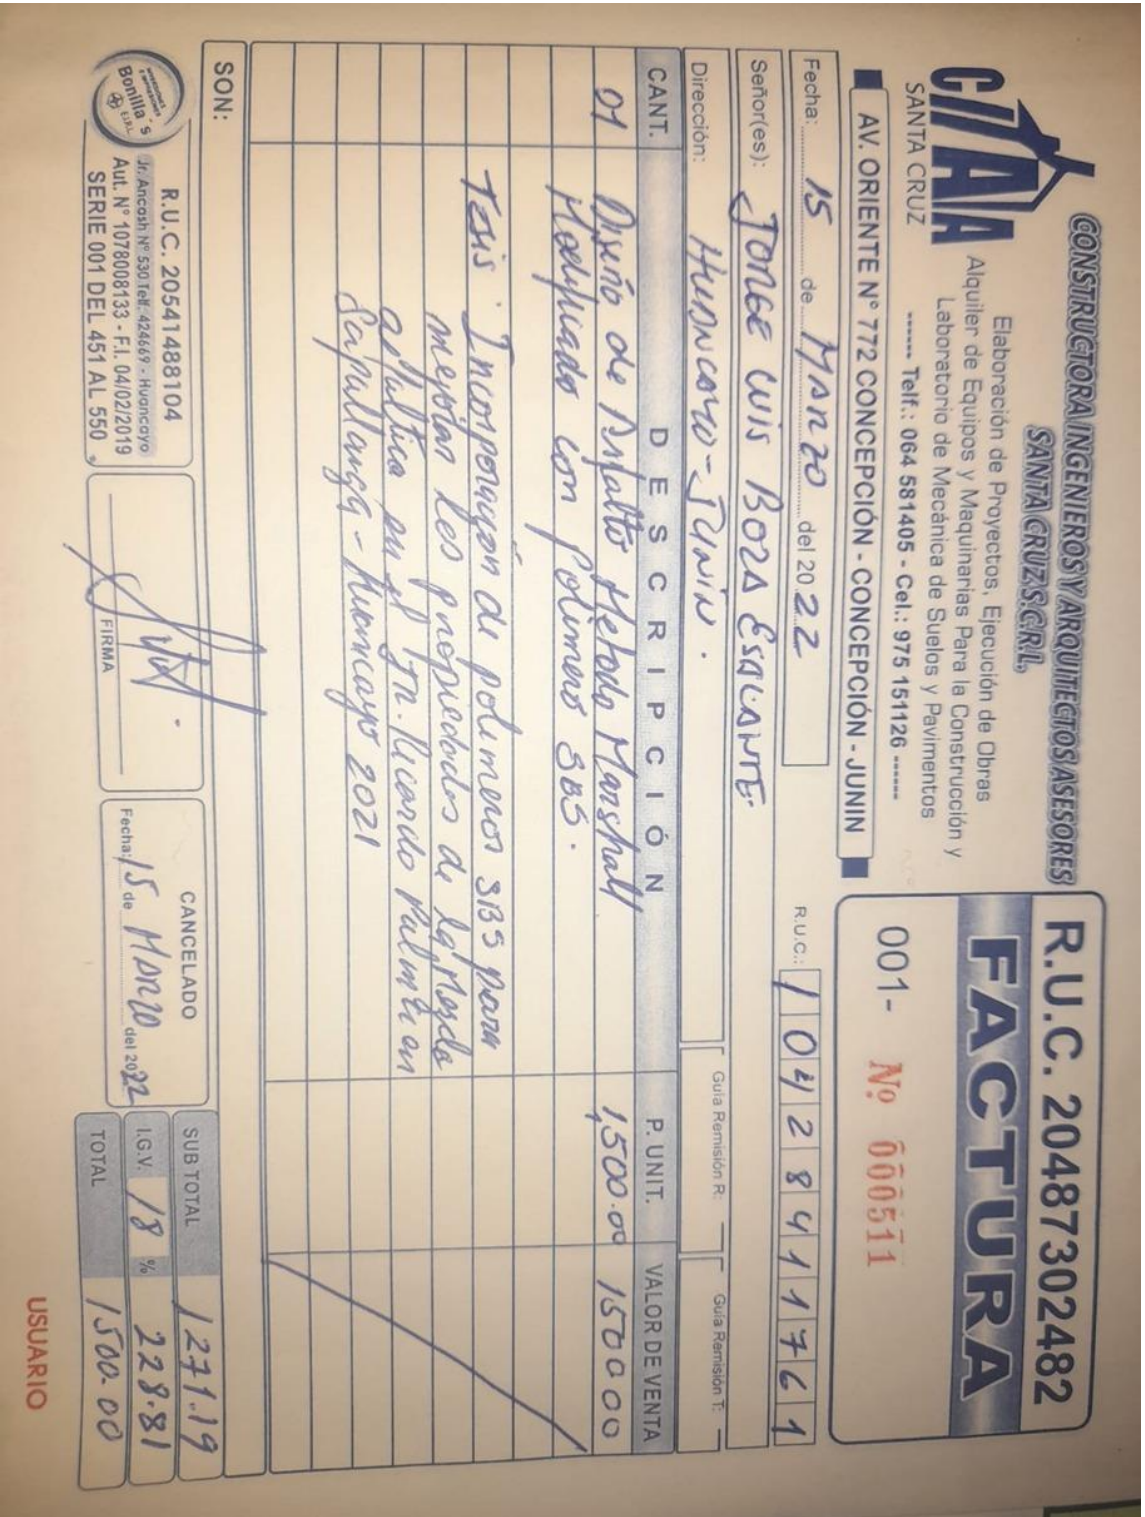 CONSTRUCTORA INGENIEROS Y ARQUITECTOS ASESORES
SANTA CRUZ S.C.R.L.
CIAA
SANTA CRUZ
Elaboración de Proyectos, Ejecución de Obras
Alquiler de Equipos y Maquinarias Para la Construcción y
Laboratorio de Mecánica de Suelos y Pavimentos
------ Telf.: 064 581405 - Cel.: 975 151126 ------
AV. ORIENTE N° 772 CONCEPCIÓN - CONCEPCIÓN - JUNIN
R.U.C. 20487302482
FACTURA
001- Nº 000511
Fecha: 15 de Marzo del 2022
R.U.C.: 10428411761
Señor(es): JORGE LUIS BOZA ESCALANTE.
Dirección: HUANCAYO - JUNIN.
Guía Remisión R:
Guía Remisión T:
CANT. DESCRIPCIÓN P. UNIT. VALOR DE VENTA
01 Diseño de Asfalto Metodo Marshall 1,500.00 1500 00
Modificado con Polimero SBS.
Tesis: Incorporación de polimeros SBS para
mejorar las propiedades de la Mezcla
asfaltica en el Jr. Ricardo Palma en
Sapallanga - Huancayo 2021
SON:
Bonilla´s
E.I.R.L.
R.U.C. 20541488104
Jr. Ancash Nº 530 Telf. 424669 - Huancayo
Aut. N° 1078008133 - F.I. 04/02/2019
SERIE 001 DEL 451 AL 550
FIRMA
CANCELADO
Fecha: 15 de Marzo del 2022
SUB TOTAL 1271.19
I.G.V. 18 % 228.81
TOTAL 1500.00
USUARIO